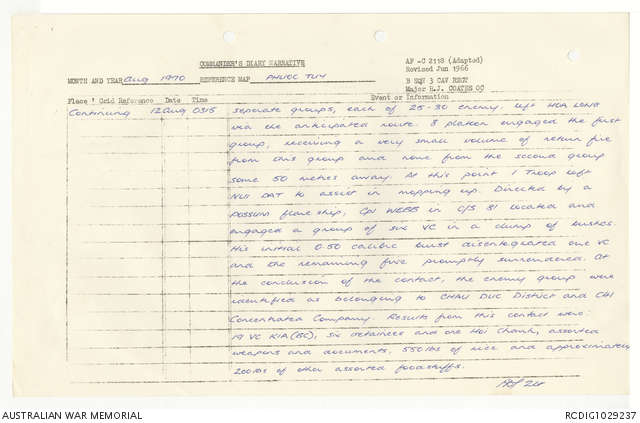 COMMANDER'S DIARY NARRATIVE
AF-C 2118 (Adapted)
Revised Jun 1966
MONTH AND YEAR Aug 1970 REFERENCE MAP PHUOC TUY
B SQN 3 CAV REGT
Major R.J. COATES OC
Place ' Grid Reference Date Time Event or Information
Continuing 12 Aug 0315 separate groups, each of 25-30 enemy. left HOA LONG
via the anticipated route. 8 platoon engaged the first
group, receiving a very small volume of return fire
from this group and none from the second group
some 50 metres away. At this point 1 Troop left
NUI DAT to assist in mopping up. Directed by a
POSSUM flareship, Cpl WEBB in C/S 81 located and
engaged a group of six VC in a clump of bushes.
His initial 0.50 calibre burst disentegrated one VC
and the remaining five promptly surrendered. At
the conclusion of the contact, the enemy group were
identified as belonging to CHAU DUC District and
Concentrated Company. Results from this contact were:
19 VC KIA (BC), six detainees and one Hoi Chanh, assorted
weapons and documents, 550 lbs of rice and approximately
200 lbs of other assorted foodstuffs.
AUSTRALIAN WAR MEMORIAL
RCDIG1029237